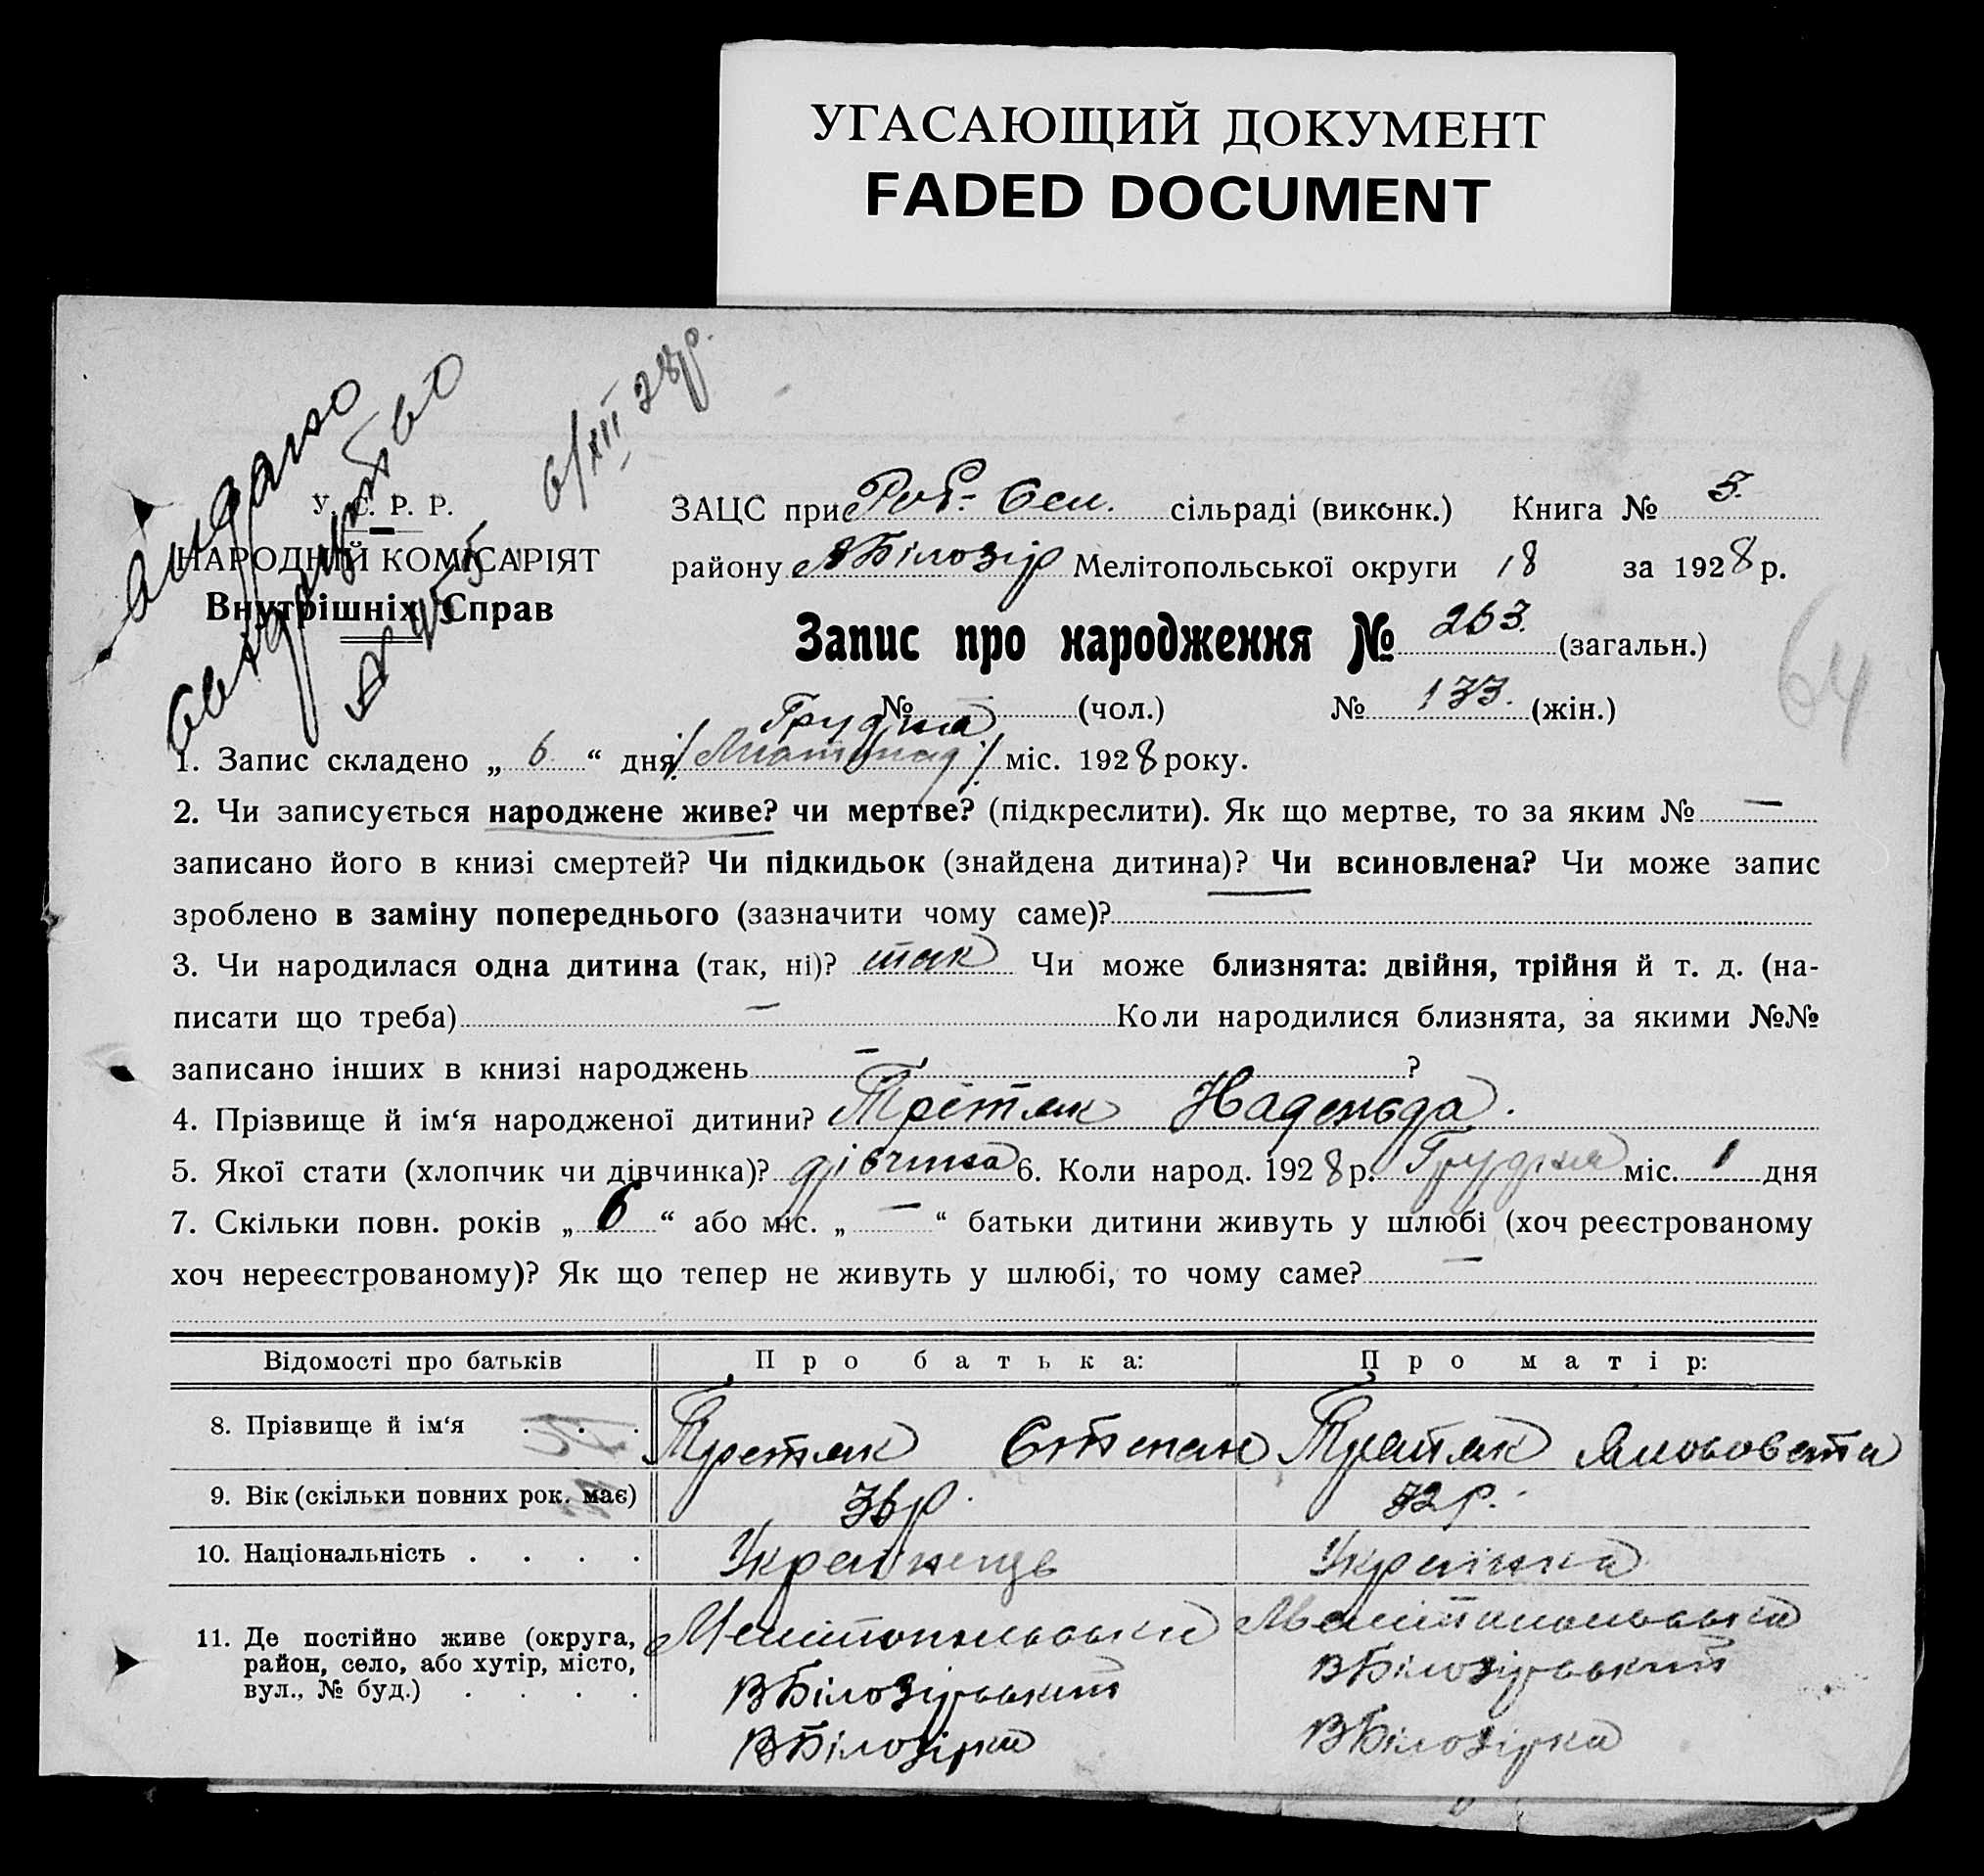 УГАСАЮЩИЙ ДОКУМЕНТ
FADED DOCUMENT
Видано
свидоцтво
№ 455
6/XII 28р.
У. С. Р. Р.
НАРОДНІЙ КОМІСАРІЯТ
Внутрішніх Справ
ЗАЦС при Роб.- Сел. сільраді (виконк.) Книга № 3.
району ВБілозір Мелітопольської округи 18 за 1928 р.
Запис про народження № 263. (загальн.)
№ (чол.) № 133. (жін.)
Грудня
1. Запис складено „ 6 “ дня /Листопад/ міс. 1928 року.
2. Чи записується народжене живе? чи мертве? (підкреслити). Як що мертве, то за яким № —
записано його в книзі смертей? Чи підкидьок (знайдена дитина)? Чи всиновлена? Чи може запис
зроблено в заміну попереднього (зазначити чому саме)?
3. Чи народилася одна дитина (так, ні)? так Чи може близнята: двійня, трійня й т. д. (на-
писати що треба) — Коли народилися близнята, за якими №№
записано інших в книзі народжень — ?
4. Прізвище й ім‘я народженої дитини? Третяк Надежда.
5. Якої стати (хлопчик чи дівчинка)? дівчина 6. Коли народ. 1928 р. Грудня міс. 1 дня
7. Скільки повн. років „ 6 “ або міс. „ — “ батьки дитини живуть у шлюбі (хоч реєстрованому
хоч нереєстрованому)? Як що тепер не живуть у шлюбі, то чому саме? —
Відомості про батьків Про батька: Про матір:
8. Прізвище й ім‘я . . . Третяк Степан Третяк
9. Вік (скільки повних рок. має) 36р. 32р.
10. Національність . . . . Українець Українка
11. Де постійно живе (округа, район, село, або хутір, місто, вул., № буд.) . . . .
Мелітопольська Мелітопольська
ВБілозірський ВБілозірський
ВБілозірка ВБілозірка
64